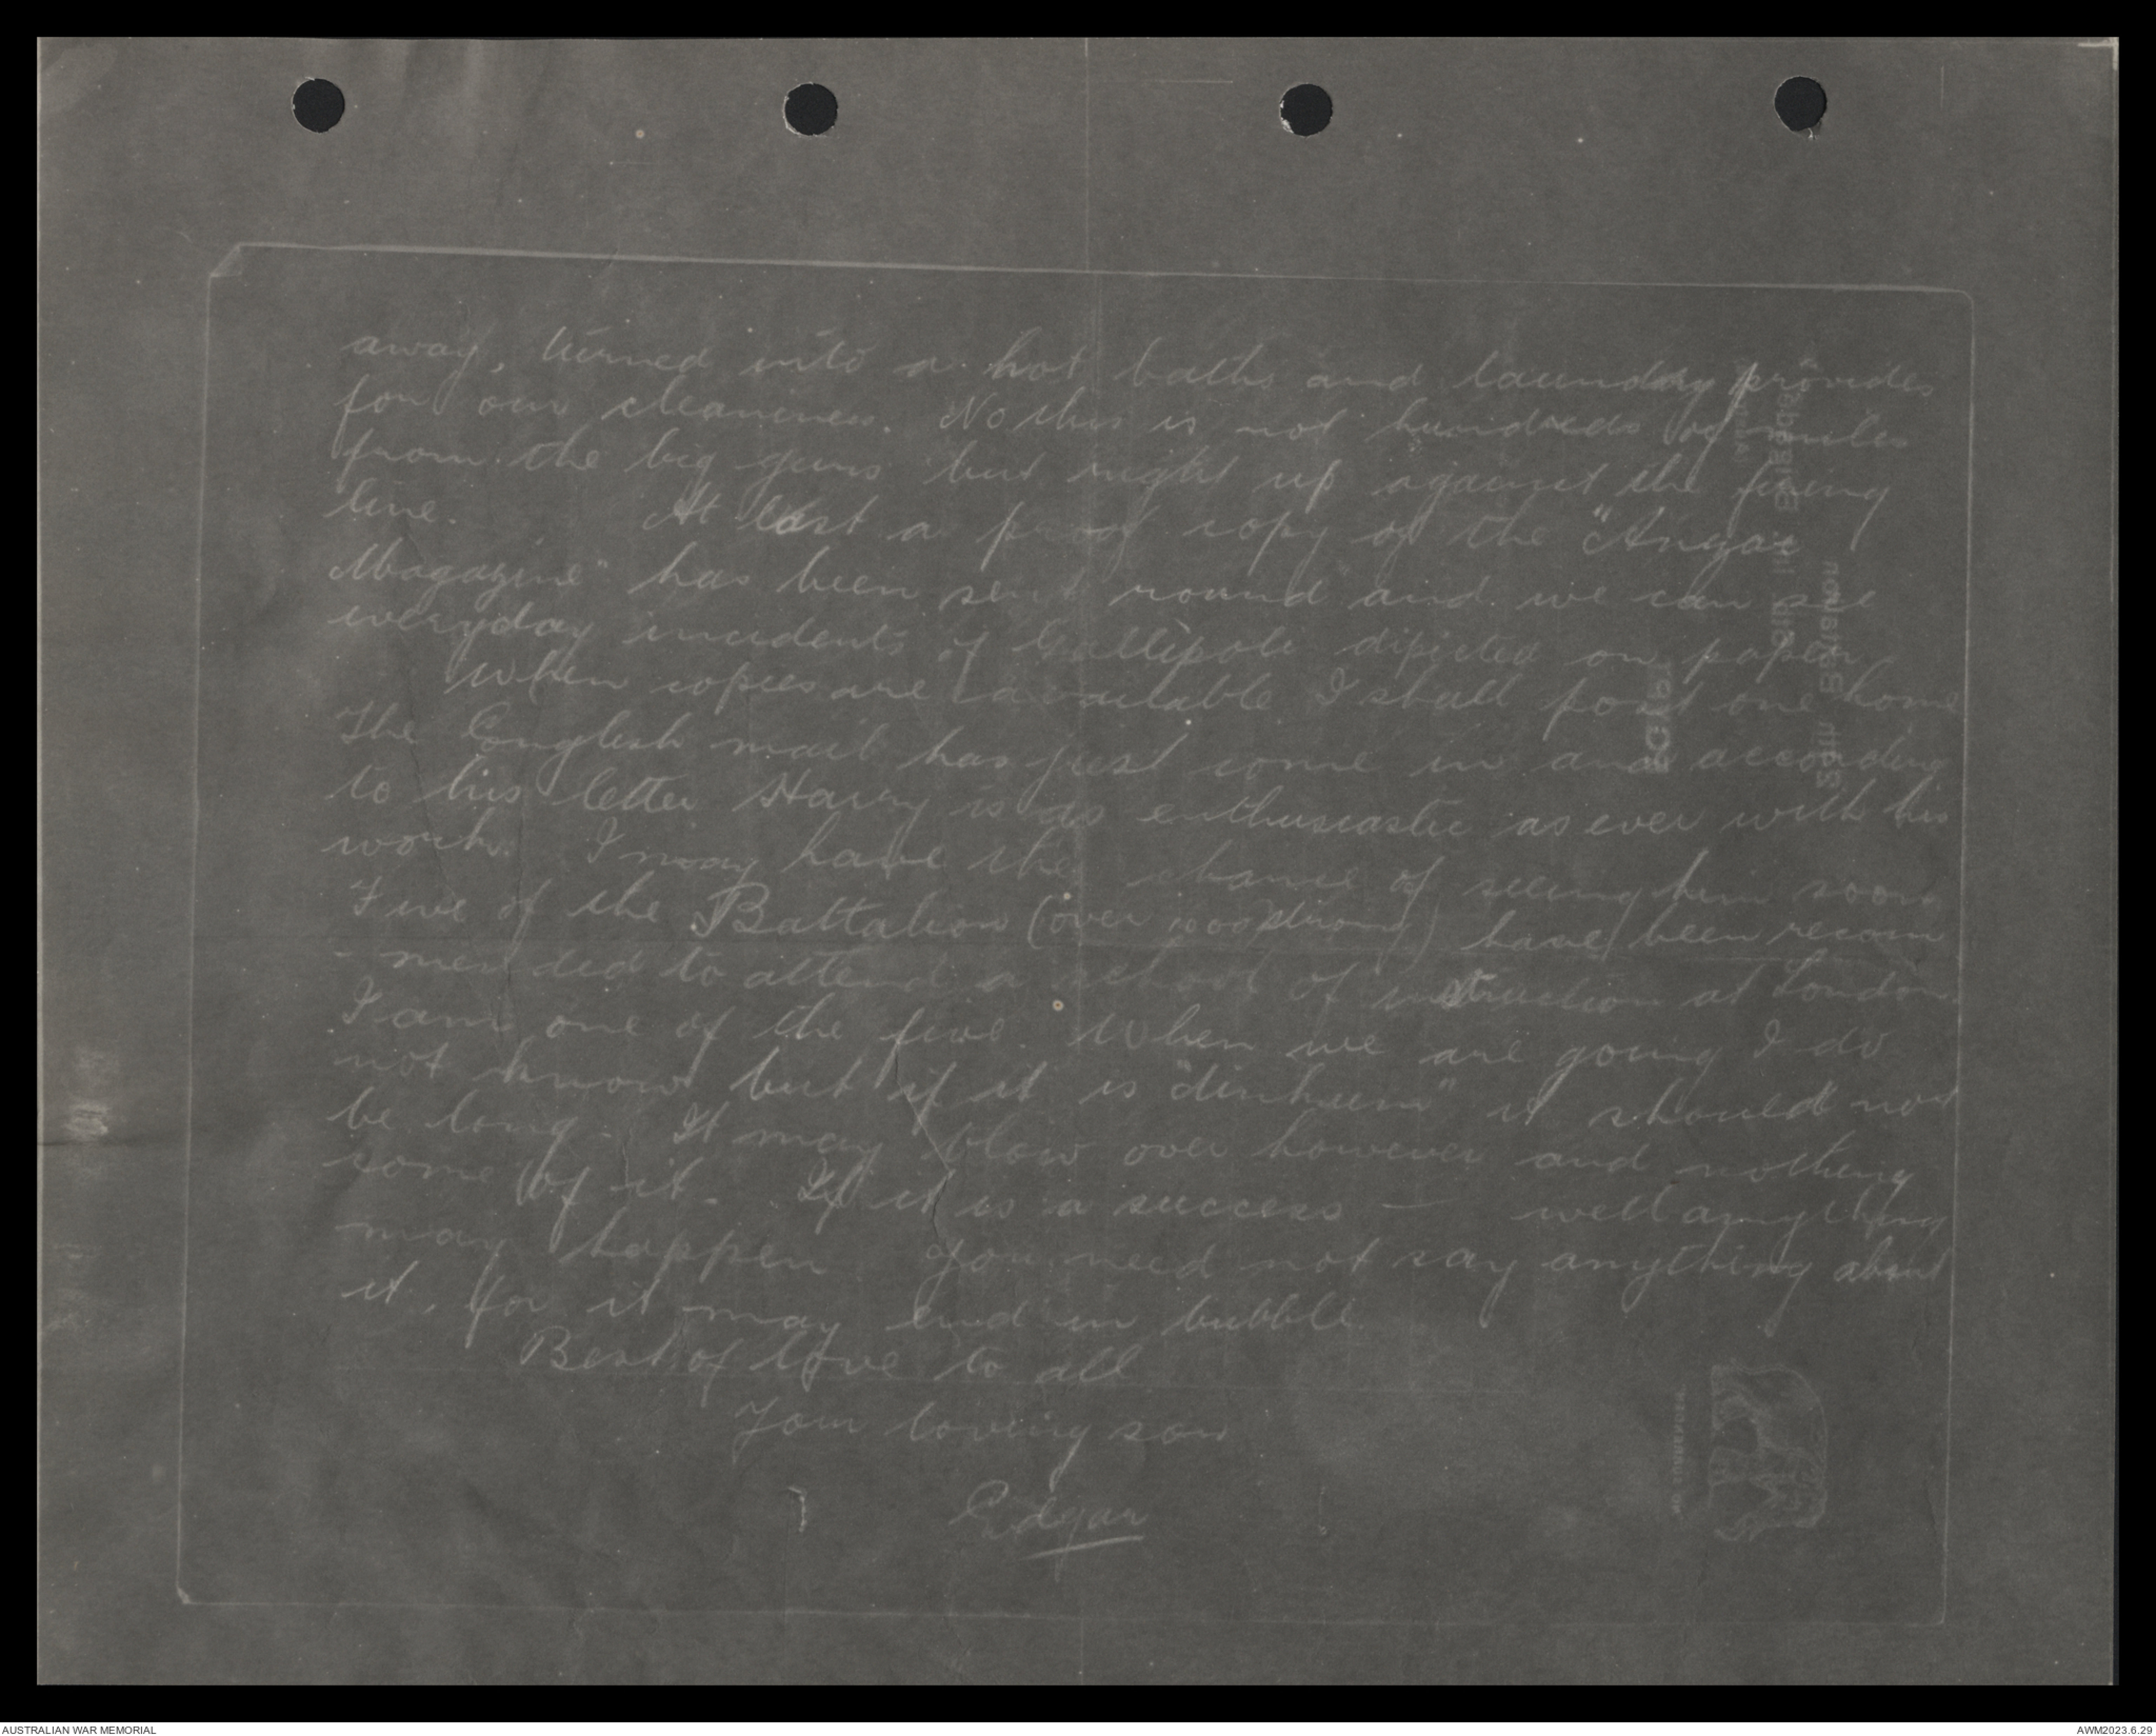 away, turned into a hot baths and laundry provides
for our cleaniness. No this is not hundreds of miles
from the big guns but right up against the firing
line. At last a proof copy of the "Anzac
Magazine" has been sent round and we can see
everyday incidents of Gallipoli dipicted on paper
When copies are available I shall post one home
The English mail has just come in and according
to his letter Harry is as enthusiastic as ever with his
work. I may have the chance of seeing him soon
Five of the Battalion (over 1000 strong) have been recom
- mended to attend a school of instruction at London.
I am one of the five. When we are going I do
not know but if it is "dinkum" it should not
be long. It may blow over however and nothing
come of it. If it is a success — well anything
may happen you need not say anything about
it, for it may end in bubble.
Best of love to all
Your loving son
Edgar
EGYPT
AUSTRALIAN WAR MEMORIAL
AWM2023.6.29